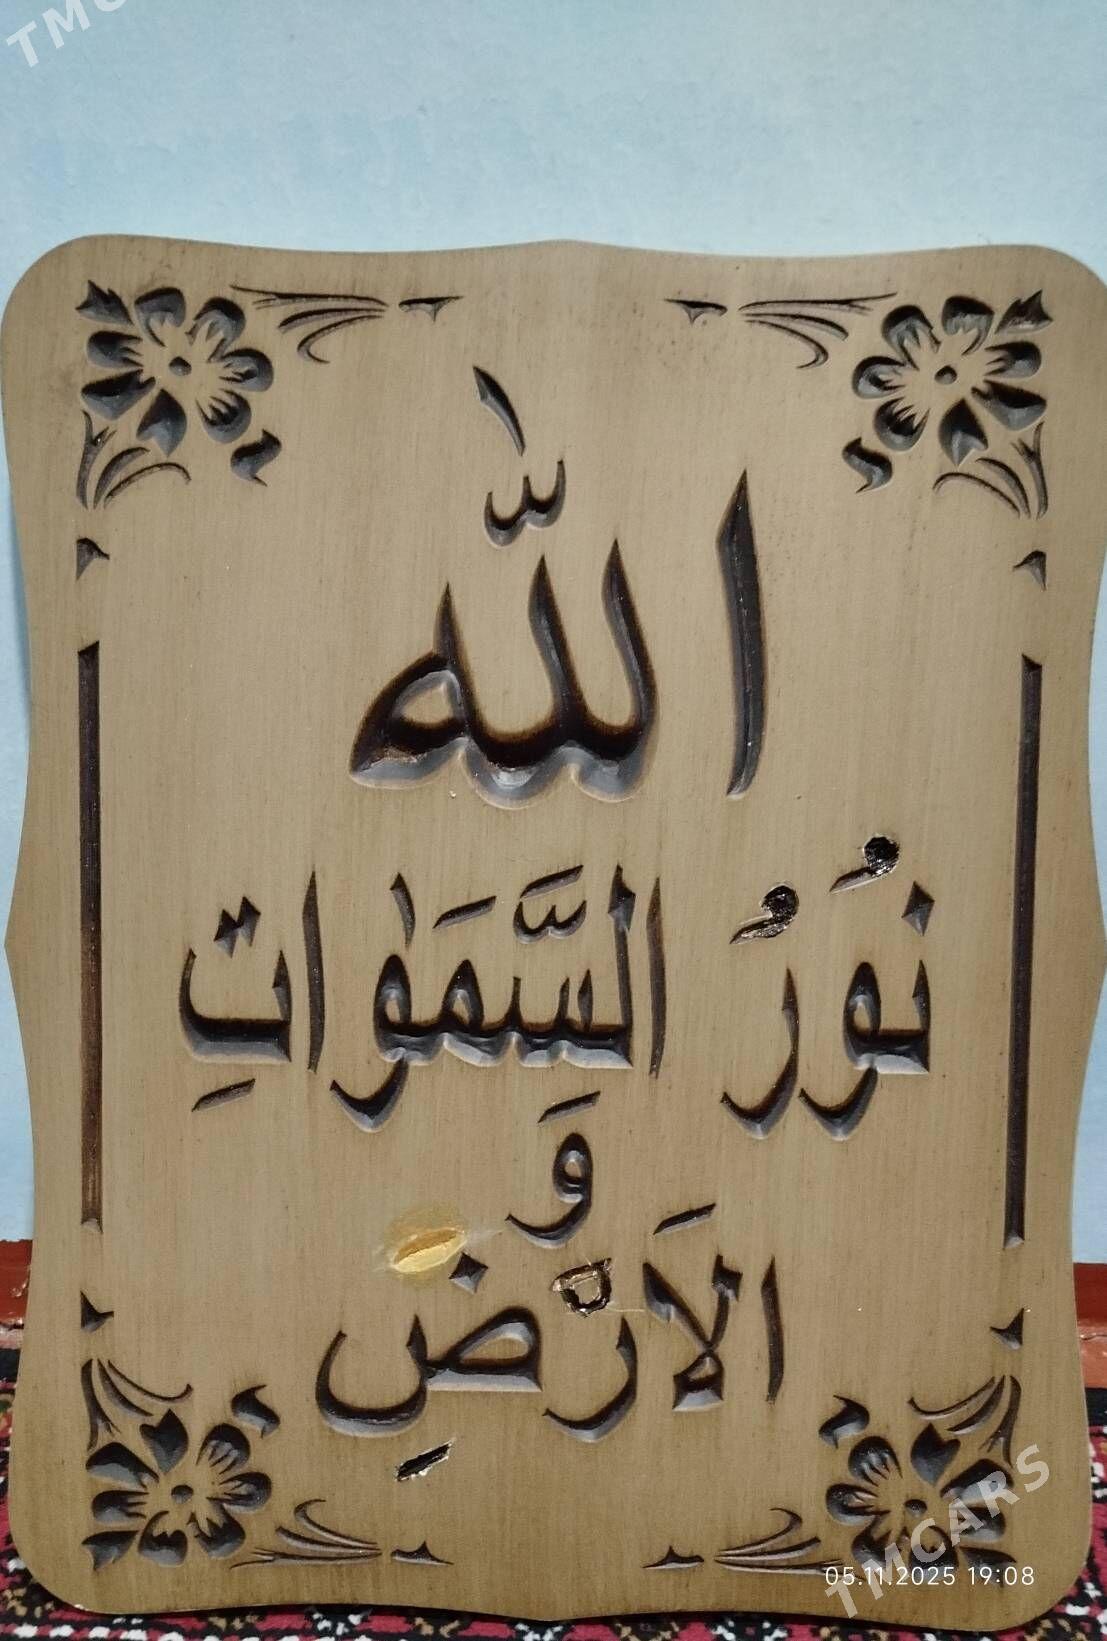 TMC
اللّٰه
نُورُ السَّمَوٰاتِ
وَ
الاَرْضِ
05.11.2025 19:08
TMCARS